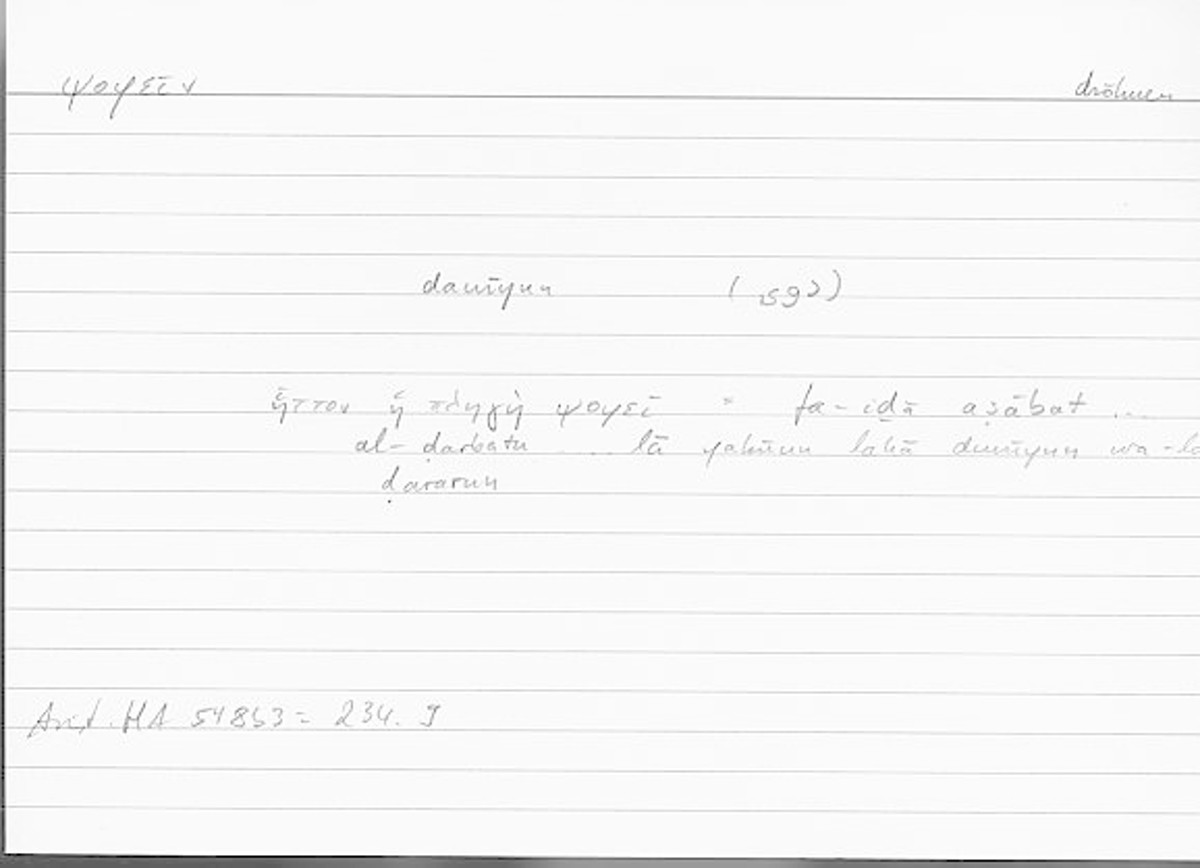 ψοφεῖν dröhnen
dawīyun (دوي)
ἧττον ἡ πληγὴ ψοφεῖ = fa-iḏā aṣābat ...
al-ḍarbatu .... lā yakūnu lahā duwīyun wa-lā
ḍararun
Arist. HA 548b3 = 234. 9